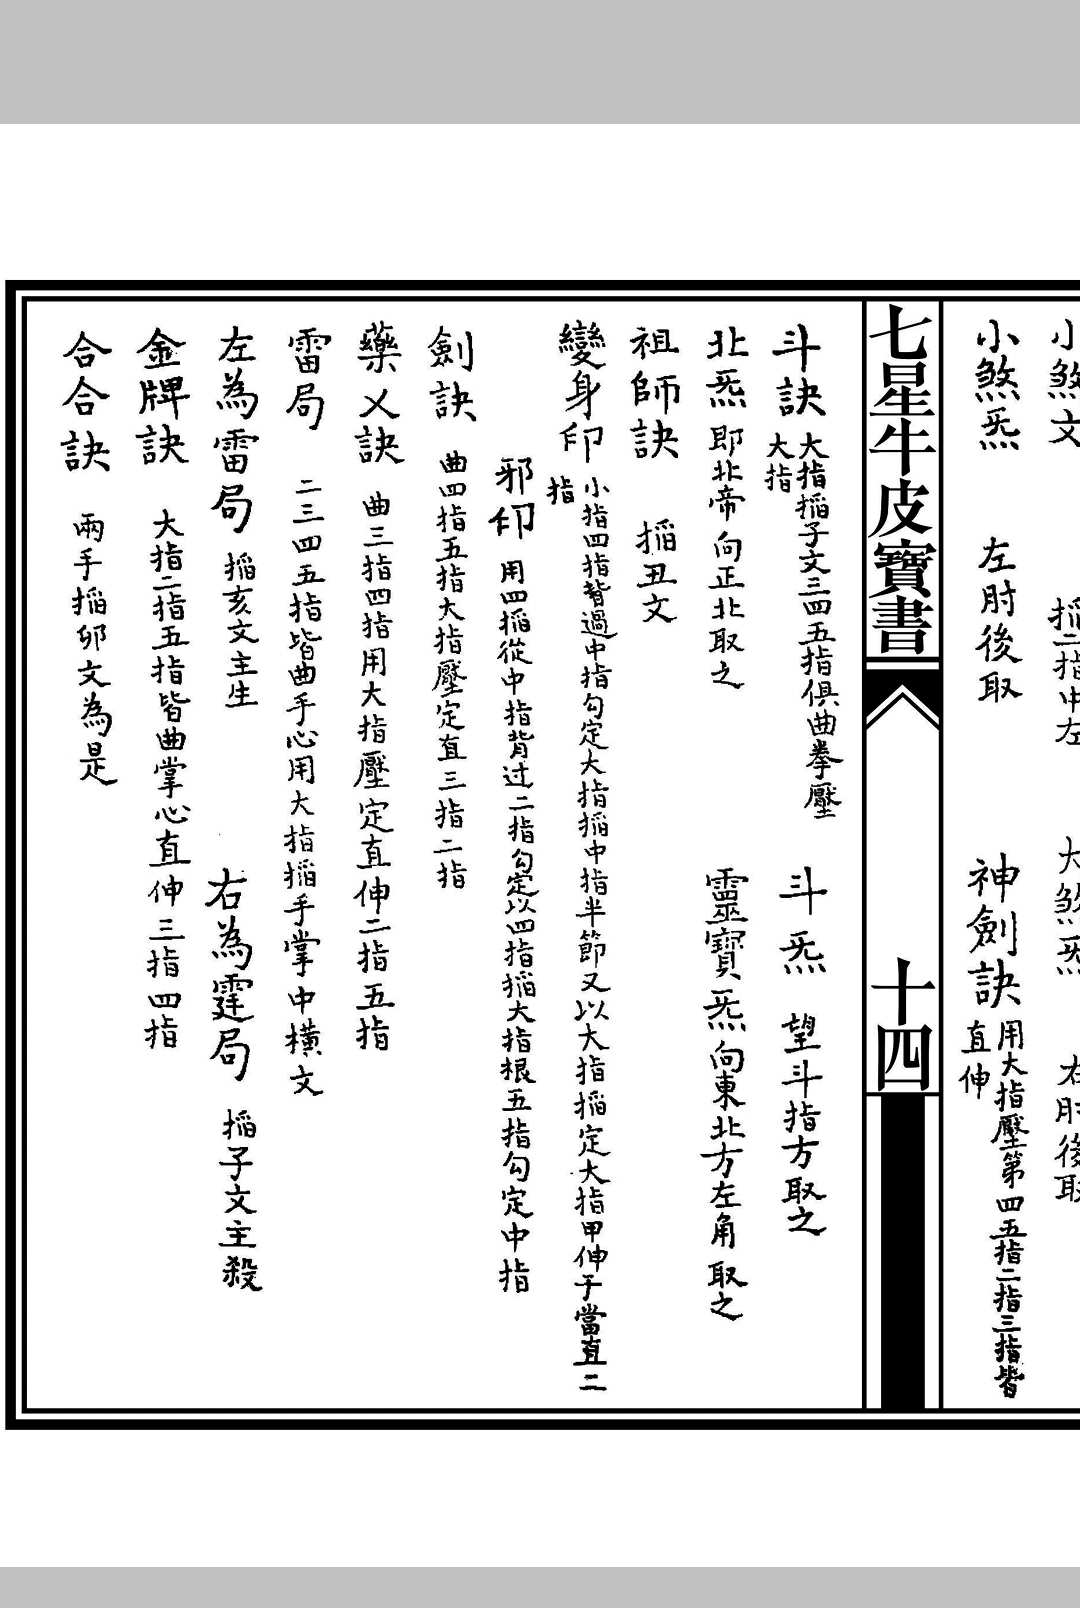 小煞文　掐二指中左　大煞炁　右肘後取
小煞炁　左肘後取　神劍訣　用大指壓第四五指二指三指皆
直伸
七星牛皮寶書　十四
斗訣　大指稻子文三四五指俱曲拳壓
大指
斗炁　望斗指方取之
北炁　即北帝向正北取之　靈寶炁　向東北方左角取之
祖師訣　稻丑文
變身印　小指四指背過中指勾定大指稻中指半節又以大指稻定大指甲伸于當直二
指
邪印　用四稻從中指背过二指勾定以四指稻大指根五指勾定中指
劍訣　曲四指五指大指壓定直三指二指
藥乂訣　曲三指四指用大指壓定直伸二指五指
雷局　二三四五指皆曲手心用大指稻手掌中横文
左為雷局　稻亥文主生　右為霆局　稻子文主殺
金牌訣　大指二指五指皆曲掌心直伸三指四指
合合訣　兩手稻卯文為是